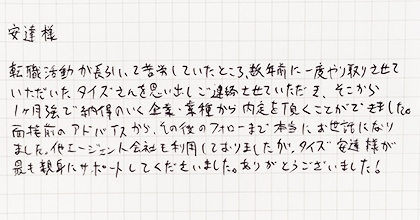 安達様
転職活動が長引いて苦労していたところ、数年前に一度やり取りさせて
いただいたタイズさんを思い出しご連絡させていただき、そこから
1ヶ月強で納得のいく企業・業種から内定を頂くことができました。
面接前のアドバイスから、その後のフォローまで本当にお世話になり
ました。他エージェント会社も利用しておりましたが、タイズ安達様が
最も親身にサポートしてくださいました。ありがとうございました!